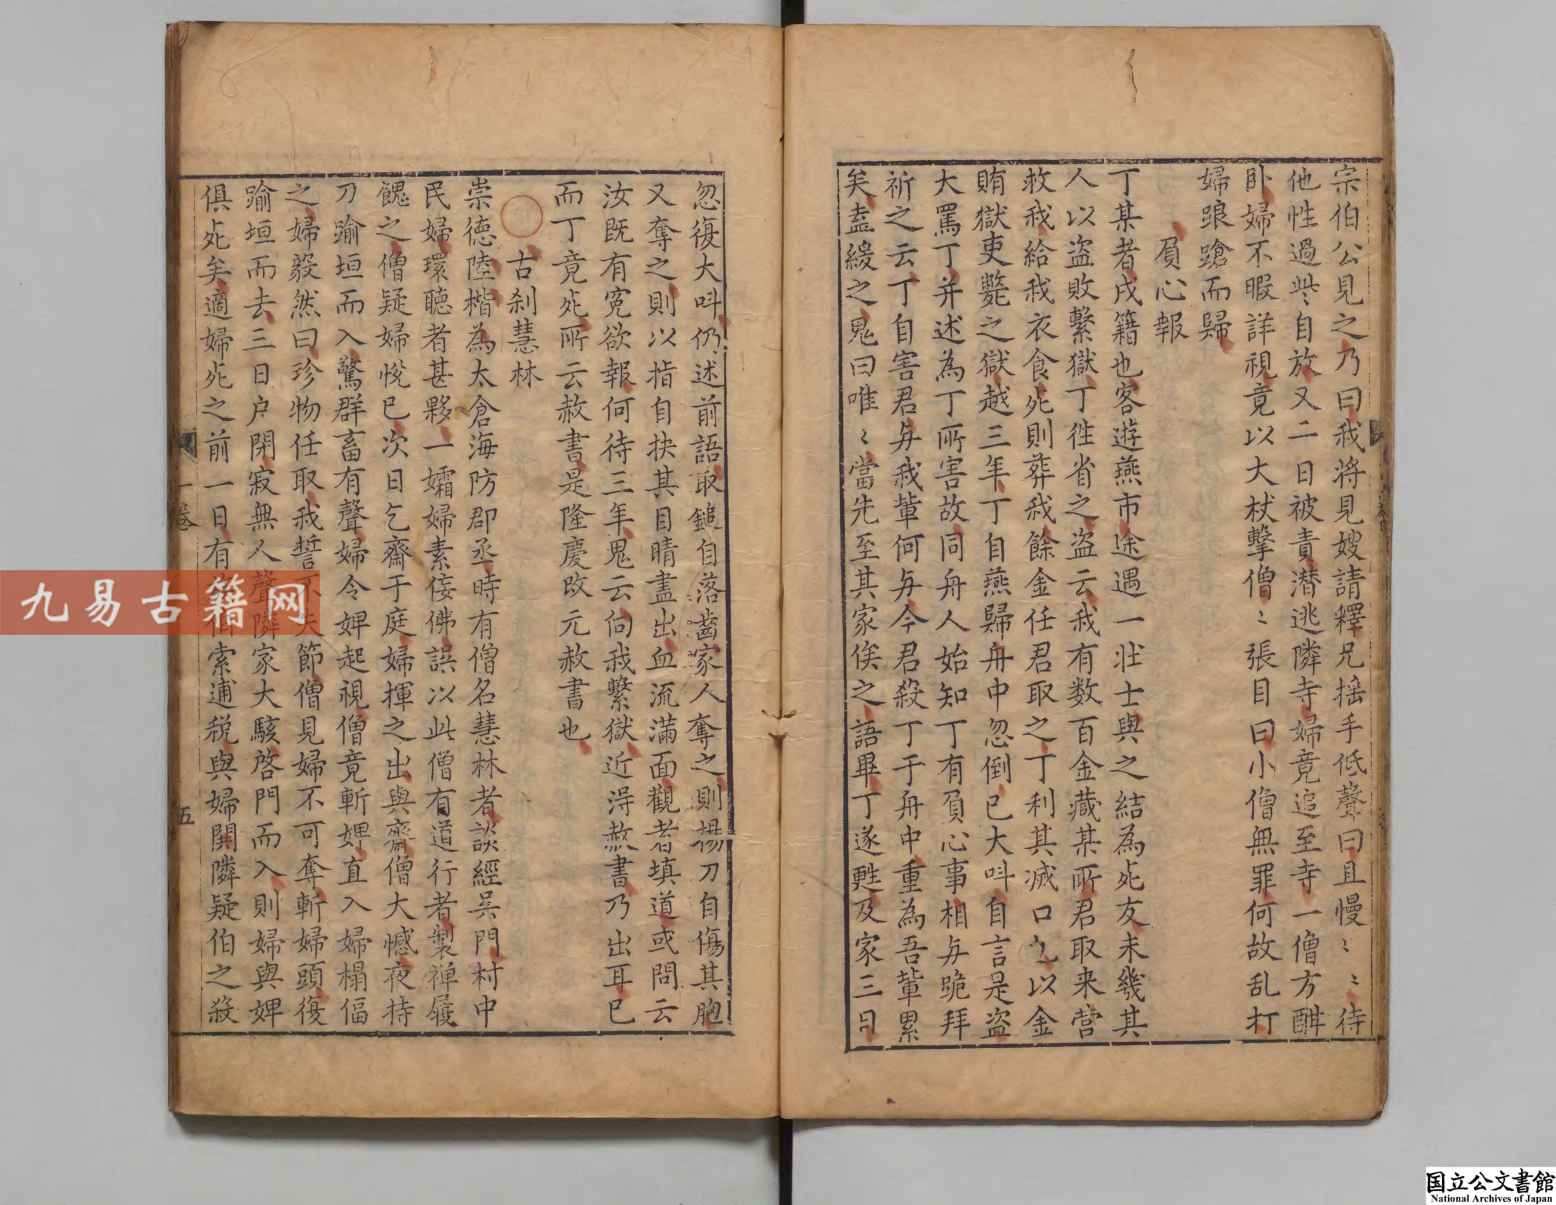 宗伯公見之乃曰我将見嫂請釋兄揺手低聲曰且慢〻〻待
他性過些自放又二日被責潜逃隣寺婦竟追至寺一僧方酣
卧婦不暇詳視竟以大杖擊僧〻張目曰小僧無罪何故乱打
婦踉蹌而歸
負心報
丁某者戍籍也客遊燕市途遇一壮士與之結為死友未幾其
人以盗敗繫獄丁徃省之盗云我有数百金藏某所君取来営
救我給我衣食死則葬我餘金任君取之丁利其滅口乆以金
賄獄吏斃之獄越三年丁自燕歸舟中忽倒已大呌自言是盗
大罵丁并述為丁所害故同舟人始知丁有負心事相与跪拜
祈之云丁自害君与我輩何与今君殺丁于舟中重為吾輩累
矣盍緩之鬼曰唯〻當先至其家俟之語畢丁遂甦及家三日
忽復大呌仍述前語取鎚自落齒家人奪之則揚刀自傷其胞
又奪之則以指自抉其目睛盡出血流滿面觀者填道或問云
汝既有寃欲報何待三年鬼云向我繫獄近淂赦書乃出耳已
而丁竟死所云赦書是隆慶改元赦書也
古刹慧林
崇德陸楷為太倉海防郡丞時有僧名慧林者談經吳門村中
民婦環聽者甚夥一孀婦素侫佛誤以此僧有道行者製禅履
餽之僧疑婦悅已次日乞齋于庭婦揮之出與齋僧大憾夜持
刀踰垣而入驚群畜有聲婦令婢起視僧竟斬婢直入婦榻偪
之婦毅然曰珍物任取我誓不失節僧見婦不可奪斬婦頭復
踰垣而去三日户閉寂無人聲隣家大駭啓門而入則婦與婢
俱死矣適婦死之前一日有索逋税與婦閧隣疑伯之殺
一卷
五
九易古籍网
国立公文書館
National Archives of Japan